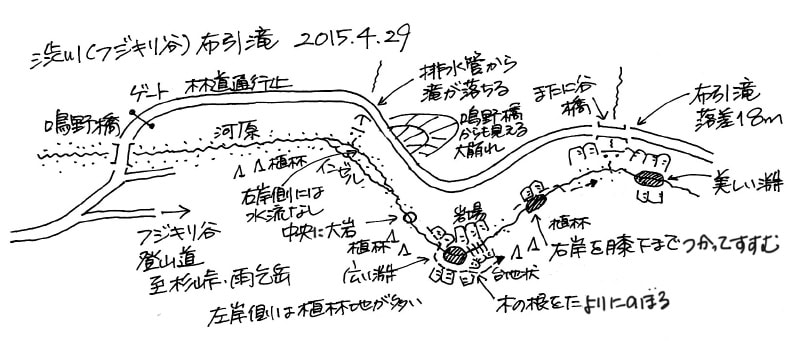 渋川(フジキリ谷)布引滝 2015.4.29
ゲート
林道通行止
排水管から
滝が落ちる
鳴野橋
河原
鳴野橋
からも見える
大崩れ
またに谷
橋
布引滝
落差18m
植林
インゼル
右岸側には
水流なし
美しい淵
中央に大岩
岩場
植林
植林
フジキリ谷
登山道
至杉峠、雨乞岳
広い淵
台地状
右岸を膝下までつかってすすむ
左岸側は植林地が多い
木の根をたよりにのぼる